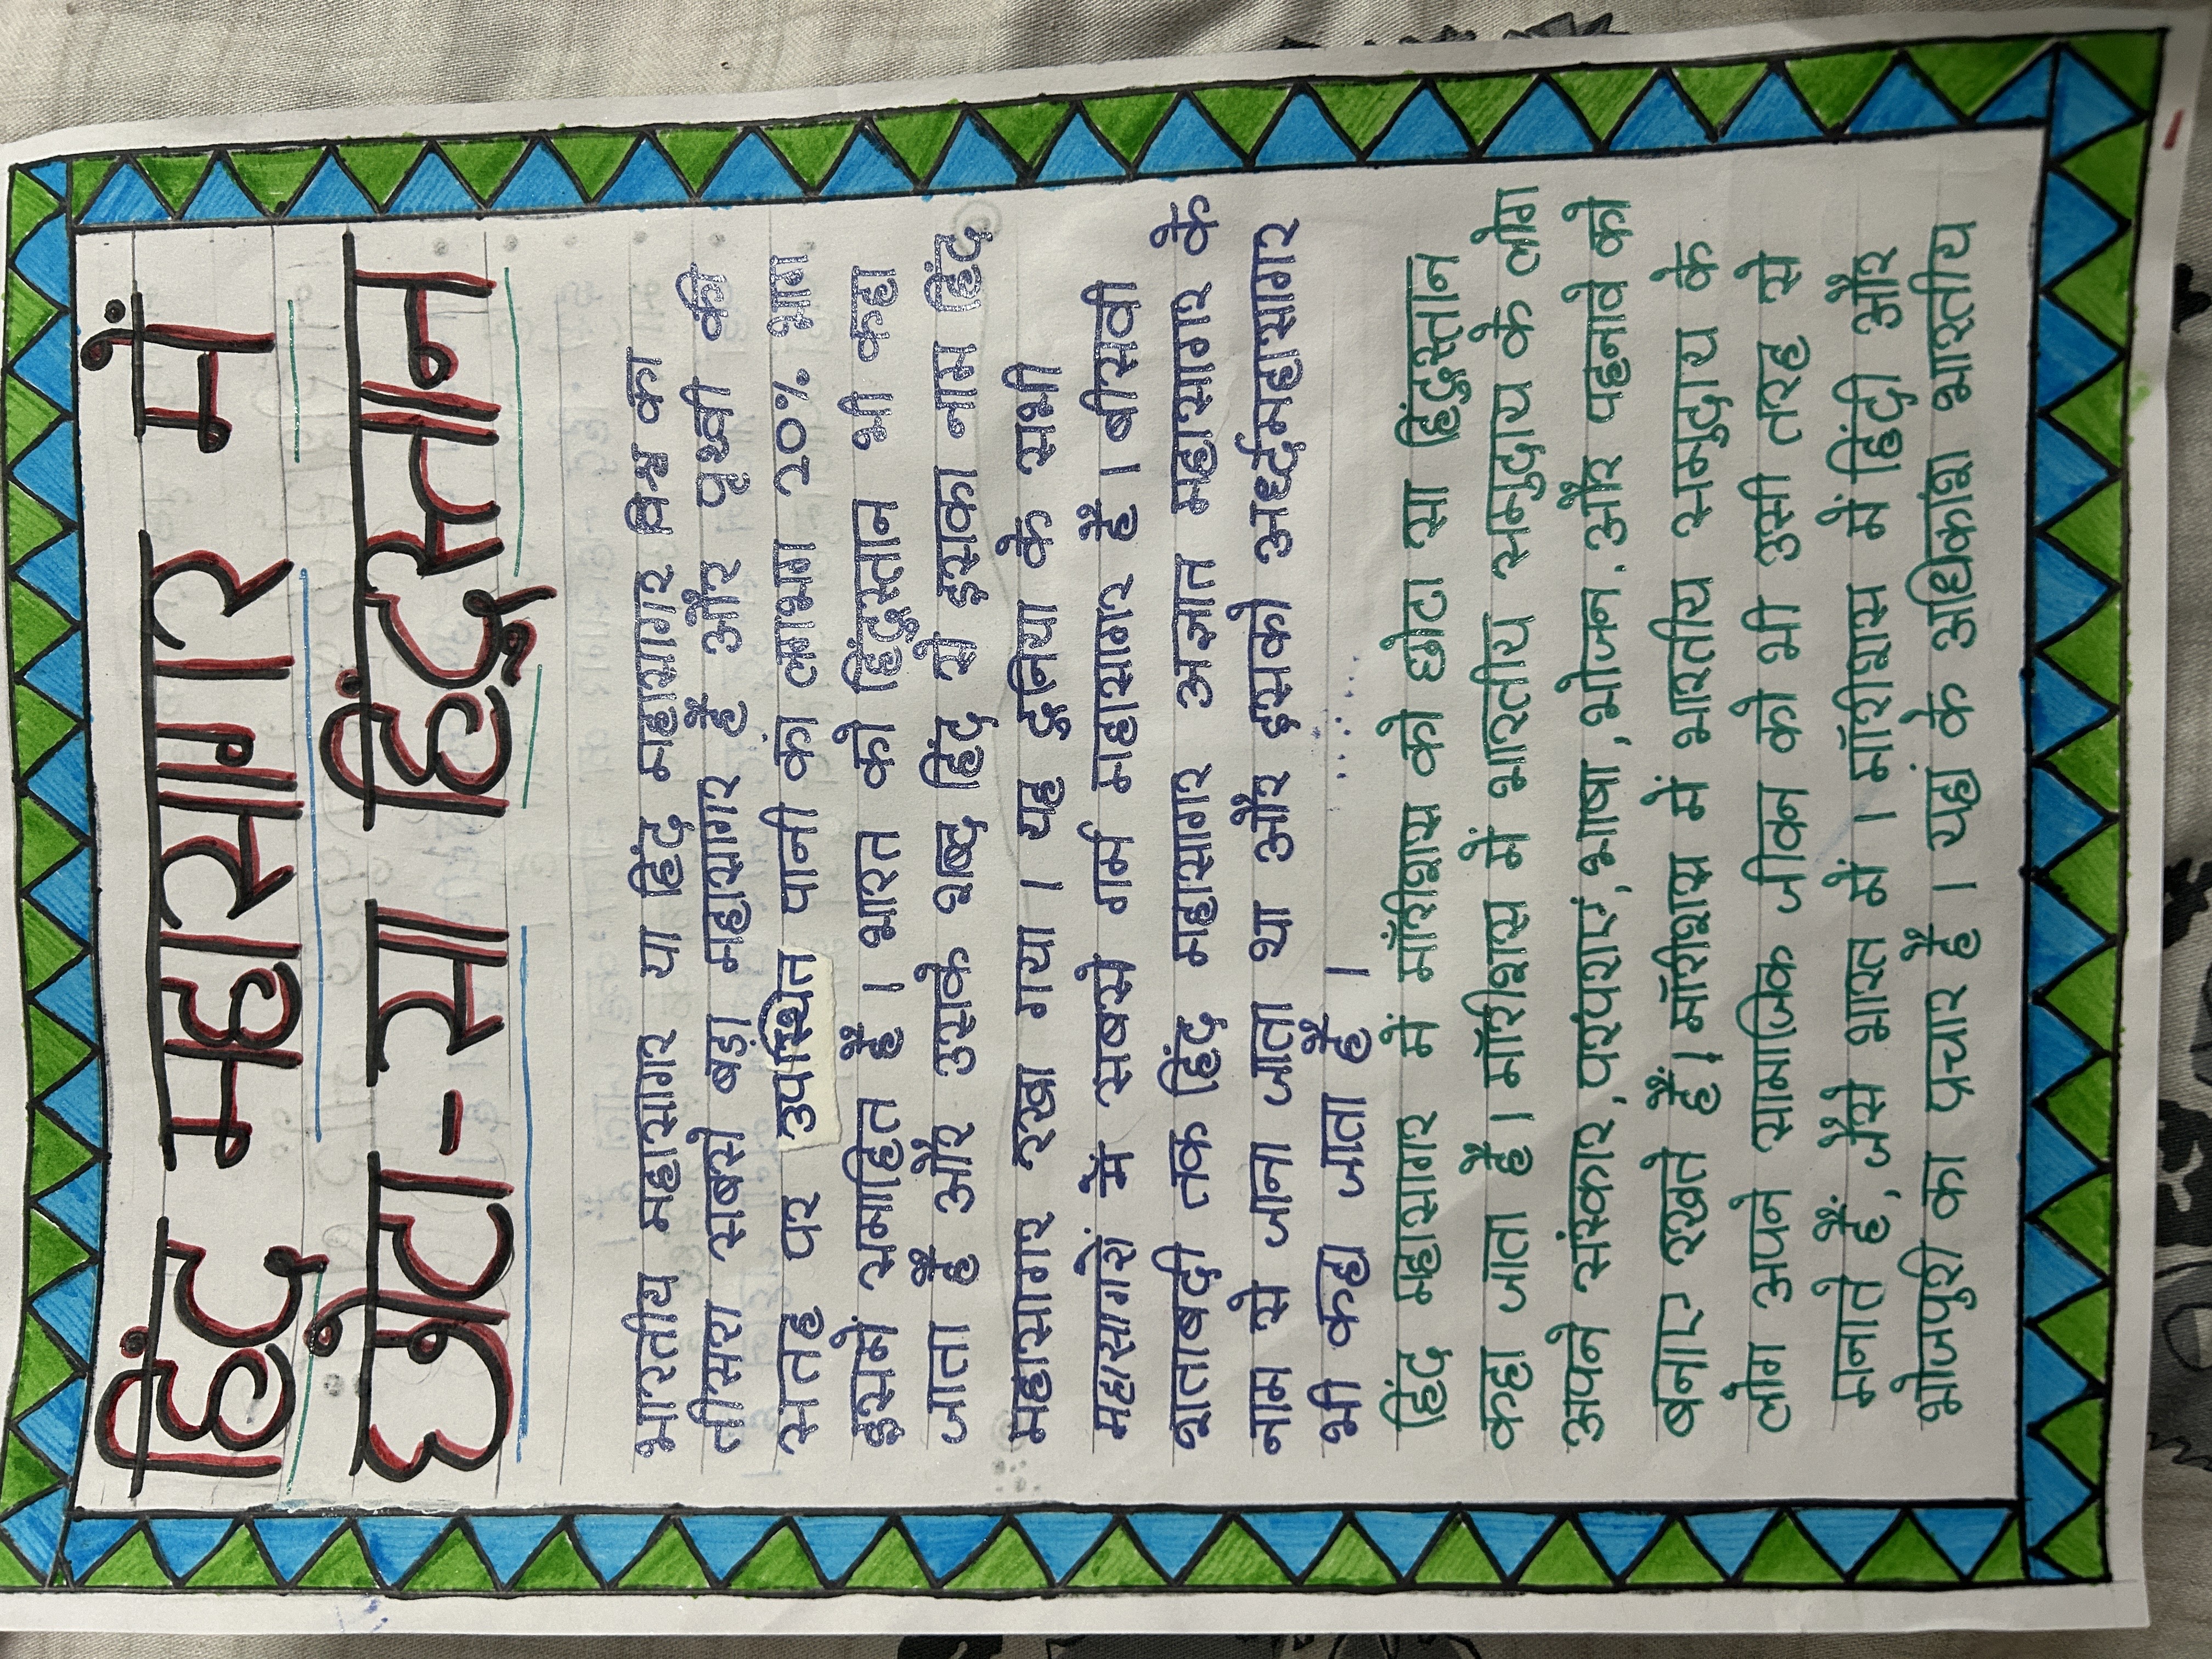 हिंद महासागर में
छोटा-सा हिंदुस्तान
भारतीय महासागर या हिंद महासागर विश्व का
तीसरा सबसे बड़ा महासागर है और पृथ्वी की
सतह पर उपस्थित पानी का लगभग 20% भाग
इसमें समाहित है । भारत को हिंदुस्तान भी कहा
जाता है और उसके शब्द हिंद से इसका नाम हिंद
महासागर रखा गया । यह दुनिया के सभी
महासागरों में सबसे गर्म महासागर है । बीसवी
शताबदी तक हिंद महासागर अज्ञात महासागर के
नाम से जाना जाता था और इसको अर्ध्दमहासागर
भी कहा जाता है ।
हिंद महासागर में मॉरीशस को छोटा सा हिंदुस्तान
कहा जाता है । मॉरीशस में भारतीय समुदाय के लोग
अपने संस्कार, परंपराएं, भाषा, भोजन, और पहनावे को
बनाए रखते हैं। मॉरीशस में भारतीय समुदाय के
लोग अपने सामाजिक जीवन को भी उसी तरह से
मनाते हैं, जैसे भारत में । मॉरीशस में हिंदी और
भोजपुरी का प्रचार है । यहां के अधिकांश भारतीय